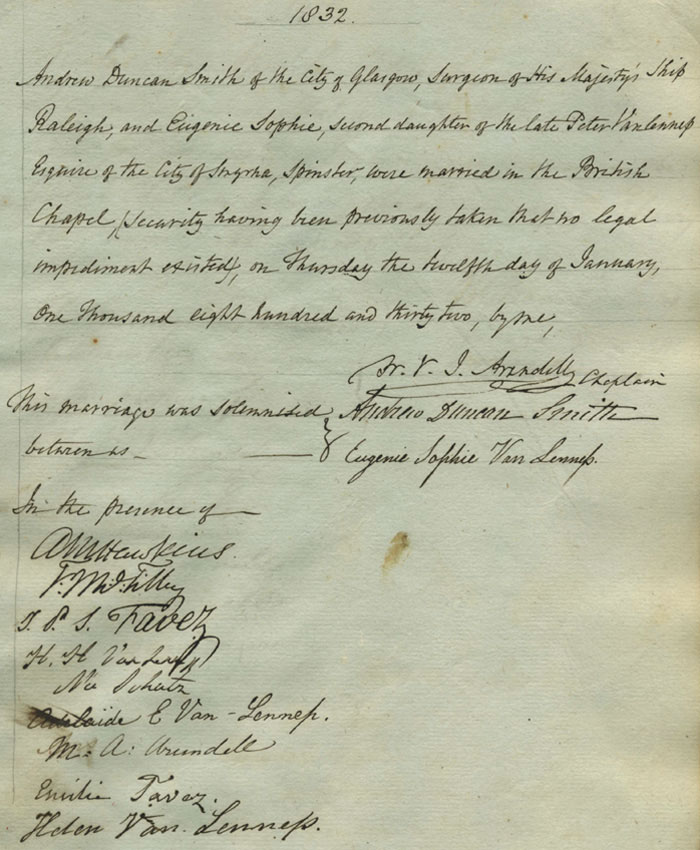 1832.
Andrew Duncan Smith of the City of Glasgow, Surgeon of His Majesty's Ship
Raleigh, and Eugenie Sophie, second daughter of the late Peter Van Lennep
Esquire of the City of Smyrna, Spinster, were married in the British
Chapel, (security having been previously taken that no legal
impediment existed), on Thursday the twelfth day of January,
One Thousand eight hundred and thirty two, by me,
V. J. Arundell, Chaplain
This marriage was solemnised Andrew Duncan Smith
between us - Eugenie Sophie Van Lennep.
In the presence of
Hawkins.
J. P. S. Tavez
H. H Van Lennep
Née Schutz
Adelaïde E Van-Lennep.
M. A: Arundell
Emilie Tavez.
Helen Van Lennep.